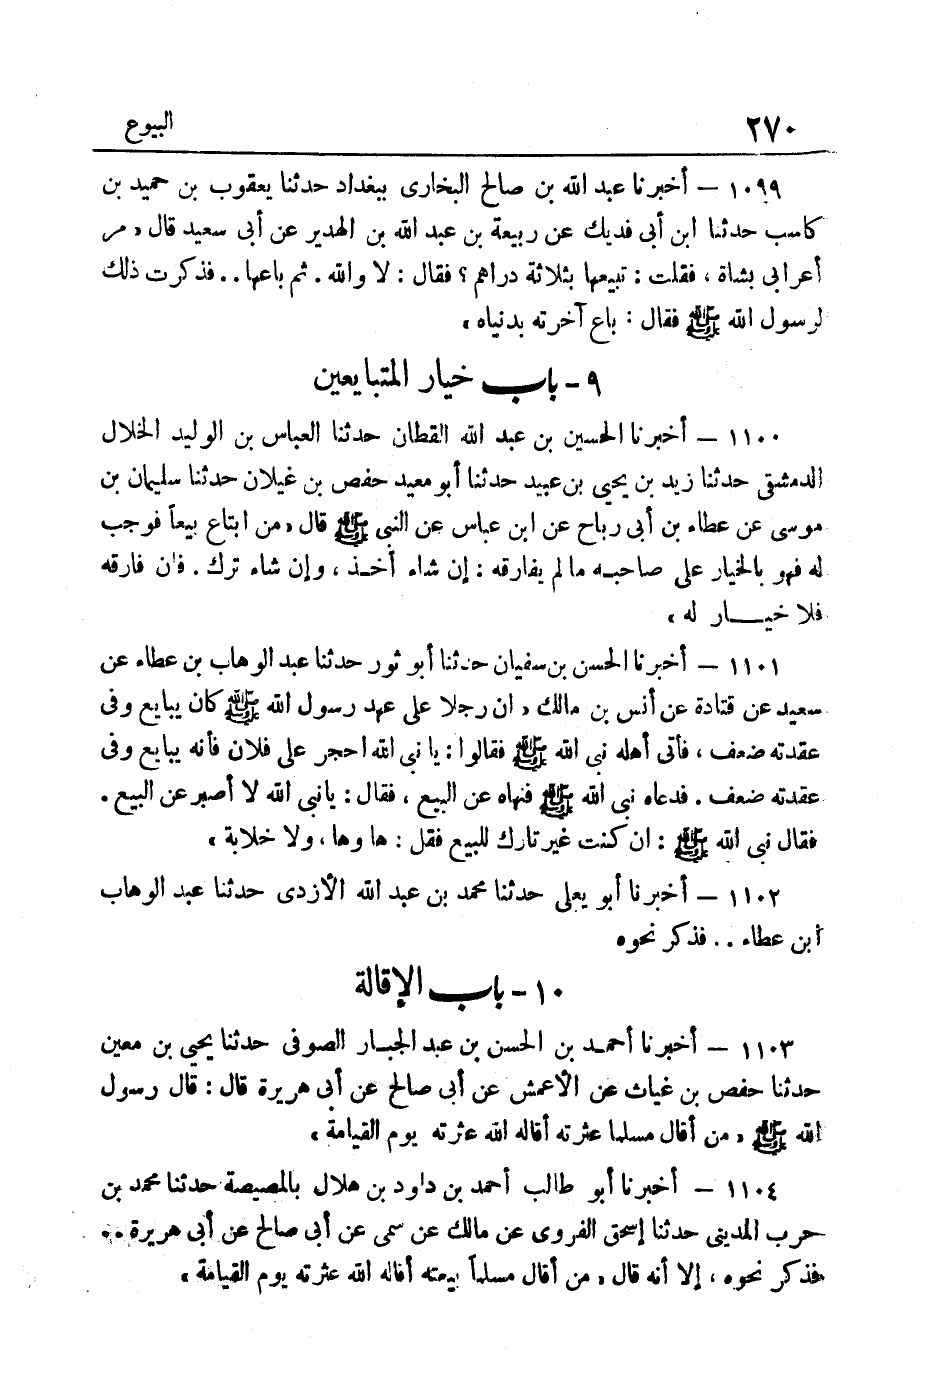 ٢٧٠ البيوع
١٠٩٩ — أخبرنا عبد الله بن صالح البخارى ببغداد حدثنا يعقوب بن حميد بن
كاسب حدثنا ابن أبى فديك عن ربيعة بن عبد الله بن الهدير عن أبى سعيد قال « مر
أعرابى بشاة ، فقلت : تبيعها بثلاثة دراهم ؟ فقال : لا والله . ثم باعها . . فذكرت ذلك
لرسول الله ﷺ فقال : باع آخرته بدنياه »
٩ - باب خيار المتبايعين
١١٠٠ — أخبرنا الحسين بن عبد الله القطان حدثنا العباس بن الوليد الخلال
الدمشقى حدثنا زيد بن يحيى بن عبيد حدثنا أبو معيد حفص بن غيلان حدثنا سليمان بن
موسى عن عطاء بن أبى رباح عن ابن عباس عن النبى ﷺ قال « من ابتاع بيعاً فوجب
له فهو بالخيار على صاحبه ما لم يفارقه : إن شاء أخذ ، وإن شاء ترك . فان فارقه
فلا خيار له »
١١٠١ — أخبرنا الحسن بن سفيان حدثنا أبو ثور حدثنا عبد الوهاب بن عطاء عن
سعيد عن قتادة عن أنس بن مالك « ان رجلا على عهد رسول الله ﷺ كان يبايع وفى
عقدته ضعف ، فأتى أهله نبى الله ﷺ فقالوا : يا نبى الله احجر على فلان فأنه يبايع وفى
عقدته ضعف . فدعاه نبى الله ﷺ فنهاه عن البيع ، فقال : يا نبى الله لا أصبر عن البيع .
فقال نبى الله ﷺ : ان كنت غير تارك للبيع فقل : ها وها ، ولا خلابة »
١١٠٢ — أخبرنا أبو يعلى حدثنا محمد بن عبد الله الأزدى حدثنا عبد الوهاب
ابن عطاء . . فذكر نحوه
١٠ - باب الإقالة
١١٠٣ — أخبرنا أحمد بن الحسن بن عبد الجبار الصوفى حدثنا يحيى بن معين
حدثنا حفص بن غياث عن الأعمش عن أبى صالح عن أبى هريرة قال : قال رسول
الله ﷺ « من أقال مسلما عثرته أقاله الله عثرته يوم القيامة »
١١٠٤ — أخبرنا أبو طالب أحمد بن داود بن هلال بالمصيصة حدثنا محمد بن
حرب المدينى حدثنا إسحق الفروى عن مالك عن سمى عن أبى صالح عن أبى هريرة . .
فذكر نحوه ، إلا أنه قال « من أقال مسلماً بيعته أقاله الله عثرته يوم القيامة »